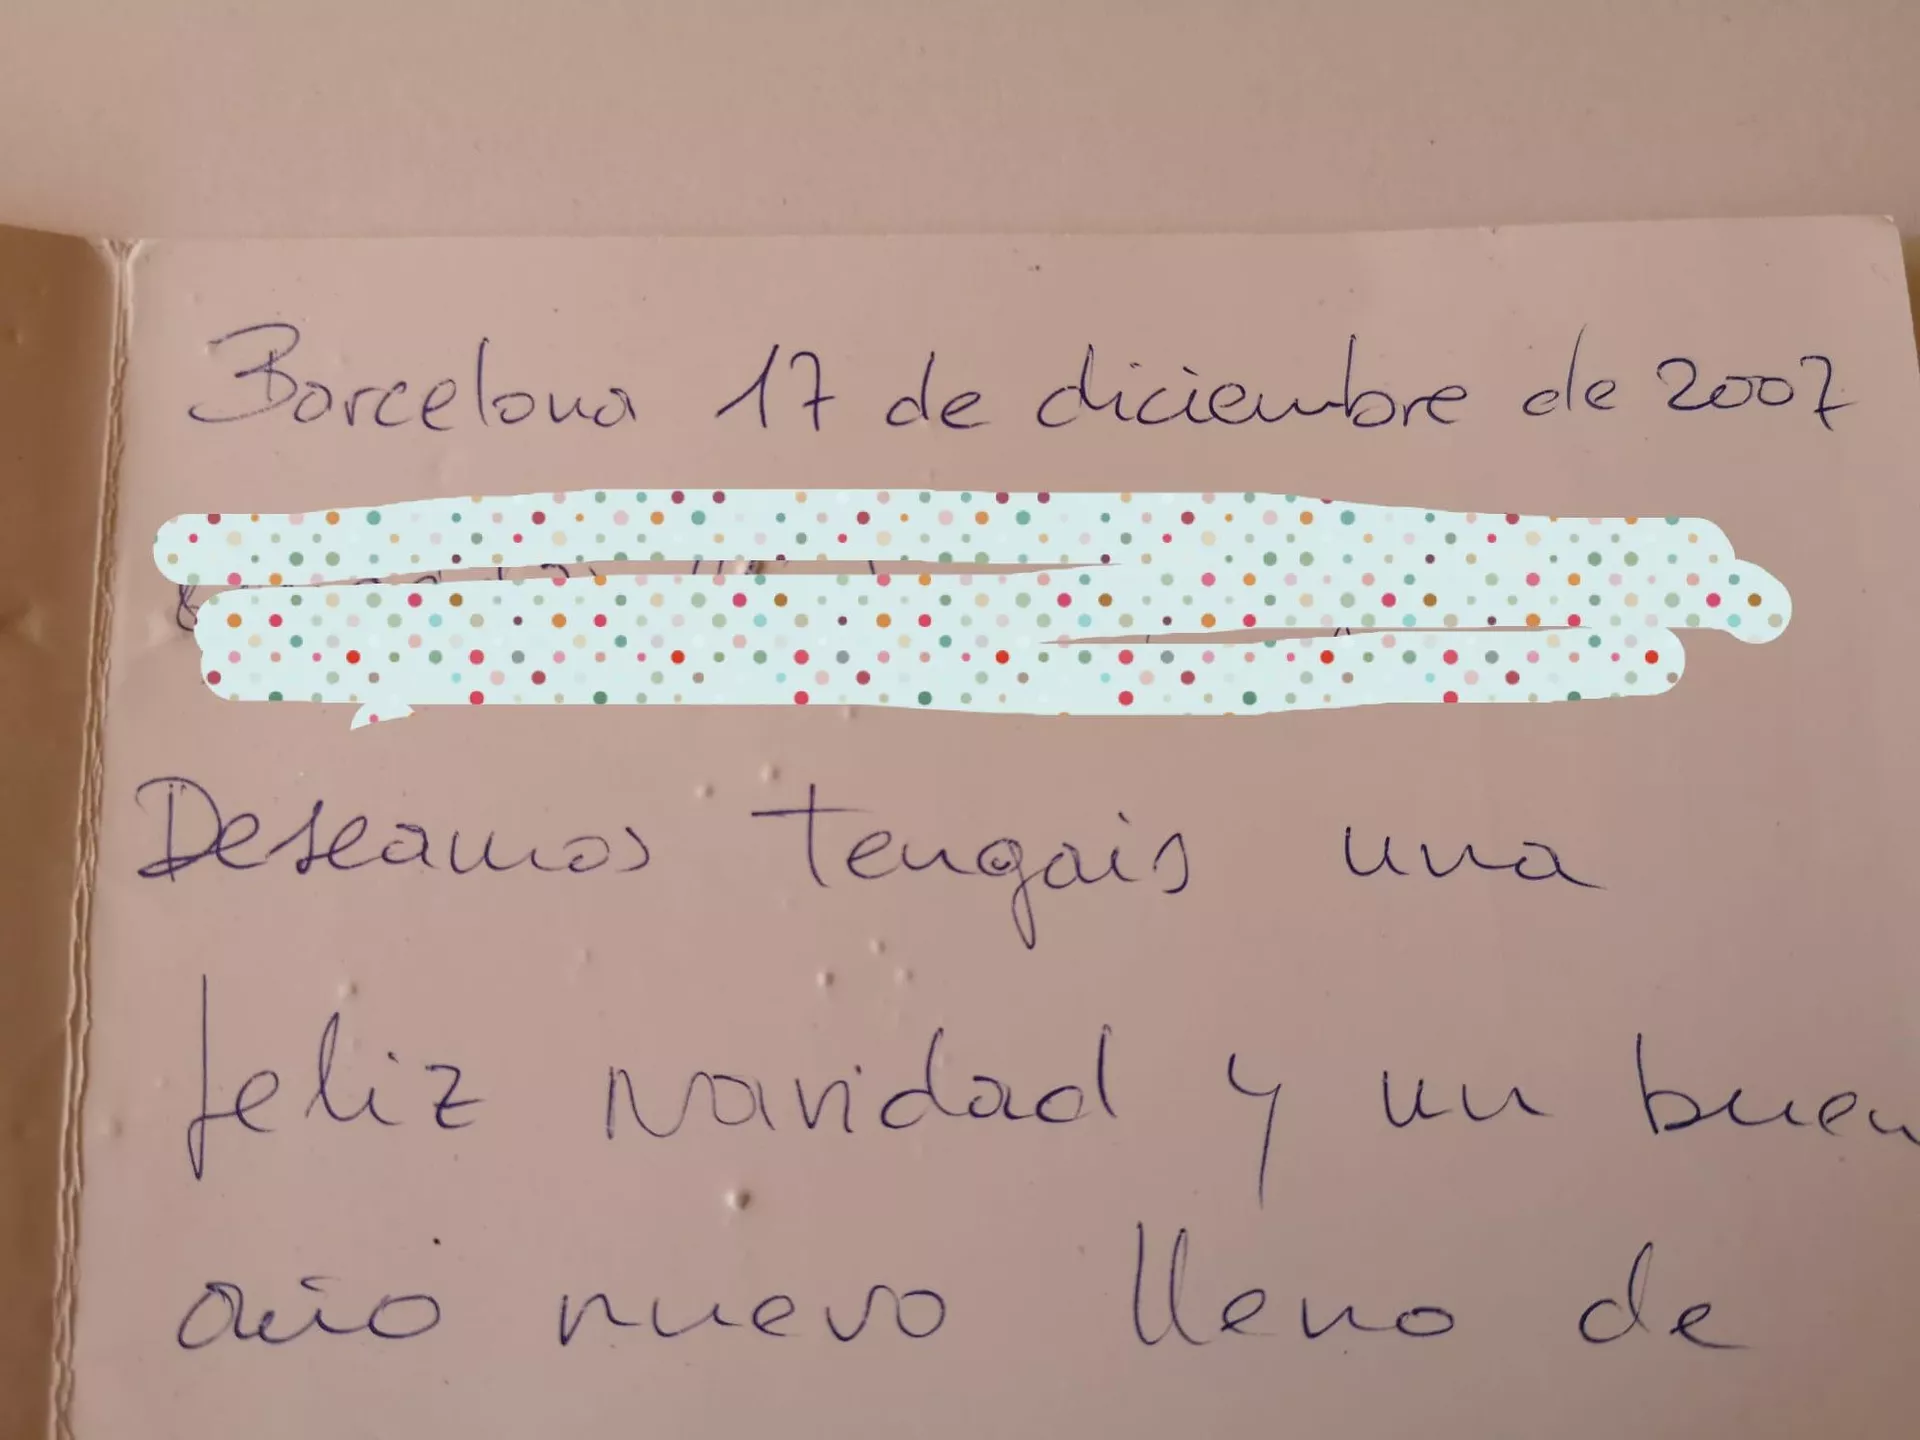 Barcelona 17 de diciembre de 2007
Deseamos tengais una
feliz navidad y un buen
año nuevo lleno de